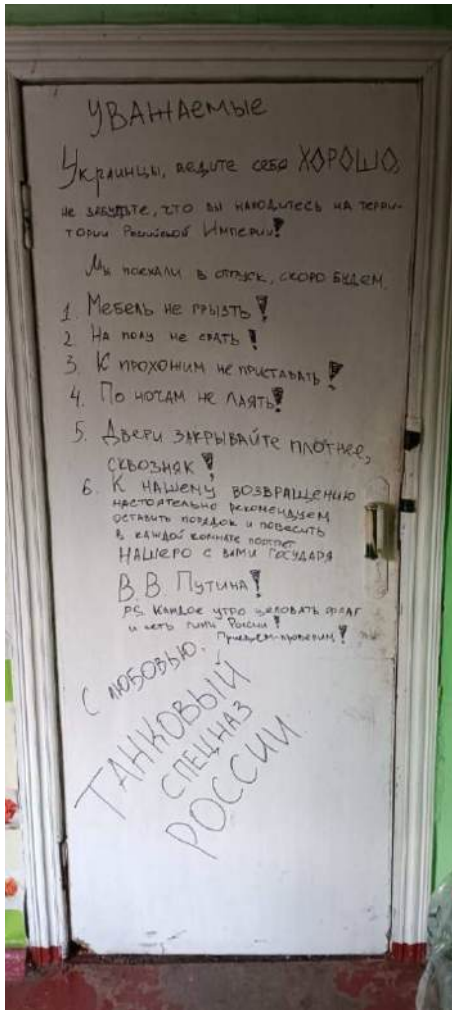 УВАЖАЕМЫЕ
Украинцы, ведите себя ХОРОШО,
не забудьте, что вы находитесь на терри-
тории Российской Империи!
Мы поехали в отпуск, скоро будем.
1. Мебель не грызть!
2. На полу не срать!
3. К прохожим не приставать!
4. По ночам не лаять!
5. Двери закрывайте плотнее,
сквозняк!
6. К нашему возвращению
настоятельно рекомендуем
оставить порядок и повесить
в каждой комнате портрет
НАШЕГО С ВАМИ ГОСУДАРЯ
В.В. Путина!
PS. Каждое утро целовать флаг
и петь гимн России!
Приедем-проверим!
С любовью.
ТАНКОВЫЙ
СПЕЦНАЗ
РОССИИ